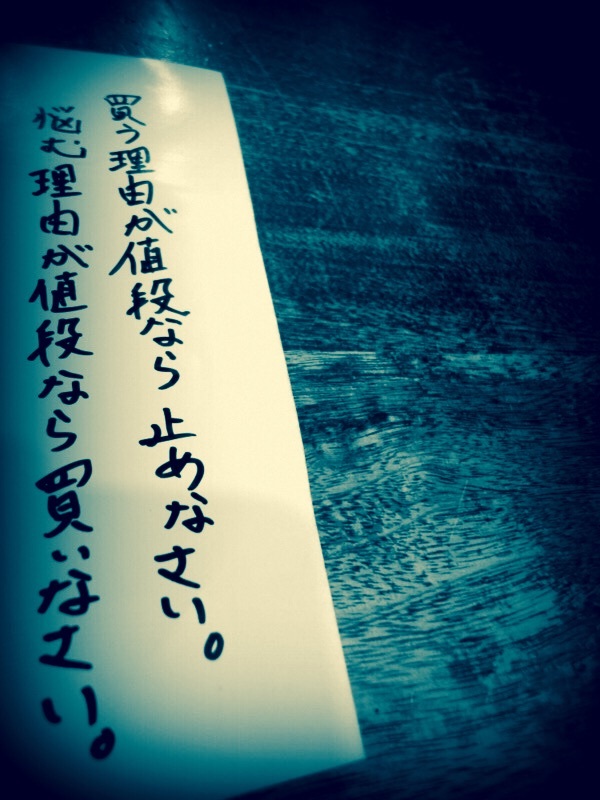 買う理由が値段なら止めなさい。
悩む理由が値段なら買いなさい。